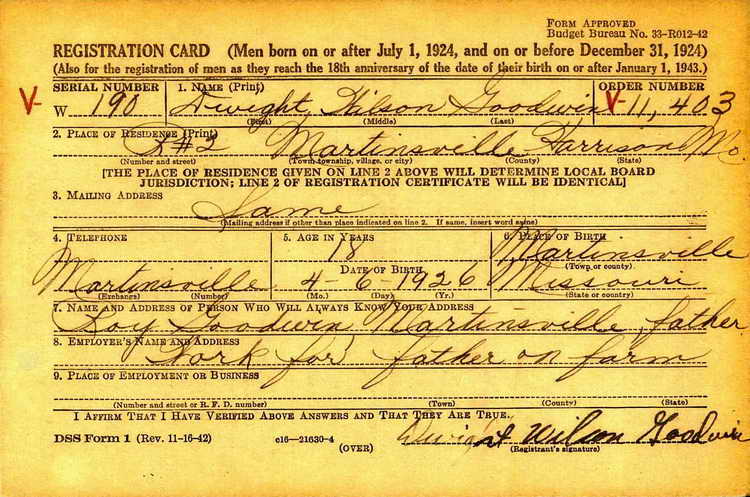 FORM APPROVED
Budget Bureau No. 33-R012-42
REGISTRATION CARD (Men born on or after July 1, 1924, and on or before December 31, 1924)
(Also for the registration of men as they reach the 18th anniversary of the date of their birth on or after January 1, 1943.)
SERIAL NUMBER 1. NAME (Print) ORDER NUMBER
V- W 190 Dwight Wilson Goodwin V-11,403
(First) (Middle) (Last)
2. PLACE OF RESIDENCE (Print)
R#2 Martinsville Harrison Mo.
(Number and street) (Town, township, village, or city) (County) (State)
[THE PLACE OF RESIDENCE GIVEN ON LINE 2 ABOVE WILL DETERMINE LOCAL BOARD
JURISDICTION; LINE 2 OF REGISTRATION CERTIFICATE WILL BE IDENTICAL]
3. MAILING ADDRESS
Same
(Mailing address if other than place indicated on line 2. If same, insert word same)
4. TELEPHONE 5. AGE IN YEARS 6. PLACE OF BIRTH
18 Martinsville
DATE OF BIRTH (Town or county)
Martinsville 4-6-1926 Missouri
(Exchange) (Number) (Mo.) (Day) (Yr.) (State or country)
7. NAME AND ADDRESS OF PERSON WHO WILL ALWAYS KNOW YOUR ADDRESS
Roy Goodwin, Martinsville, father
8. EMPLOYER'S NAME AND ADDRESS
Work for father on farm
9. PLACE OF EMPLOYMENT OR BUSINESS
(Number and street or R. F. D. number) (Town) (County) (State)
I AFFIRM THAT I HAVE VERIFIED ABOVE ANSWERS AND THAT THEY ARE TRUE.
DSS Form 1 (Rev. 11-16-42) c16-21630-4 Dwight Wilson Goodwin
(OVER) (Registrant's signature)